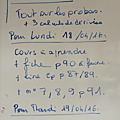 Tout sur les probas
+ 3 calculs de dérivées
Pour Lundi 18/04/16.
Cours à apprendre
+ fiche p90 à faire
+ lire Cp p 87/89.
+ n° 7, 8, 9 p 91.
Pour Mardi 19/04/16.